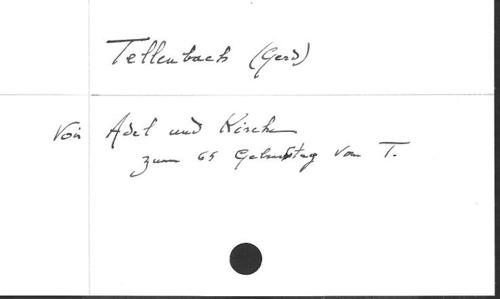 Tellenbach (Gerd)
Voir Adel und Kirche
zum 65 Geburtstag von T.